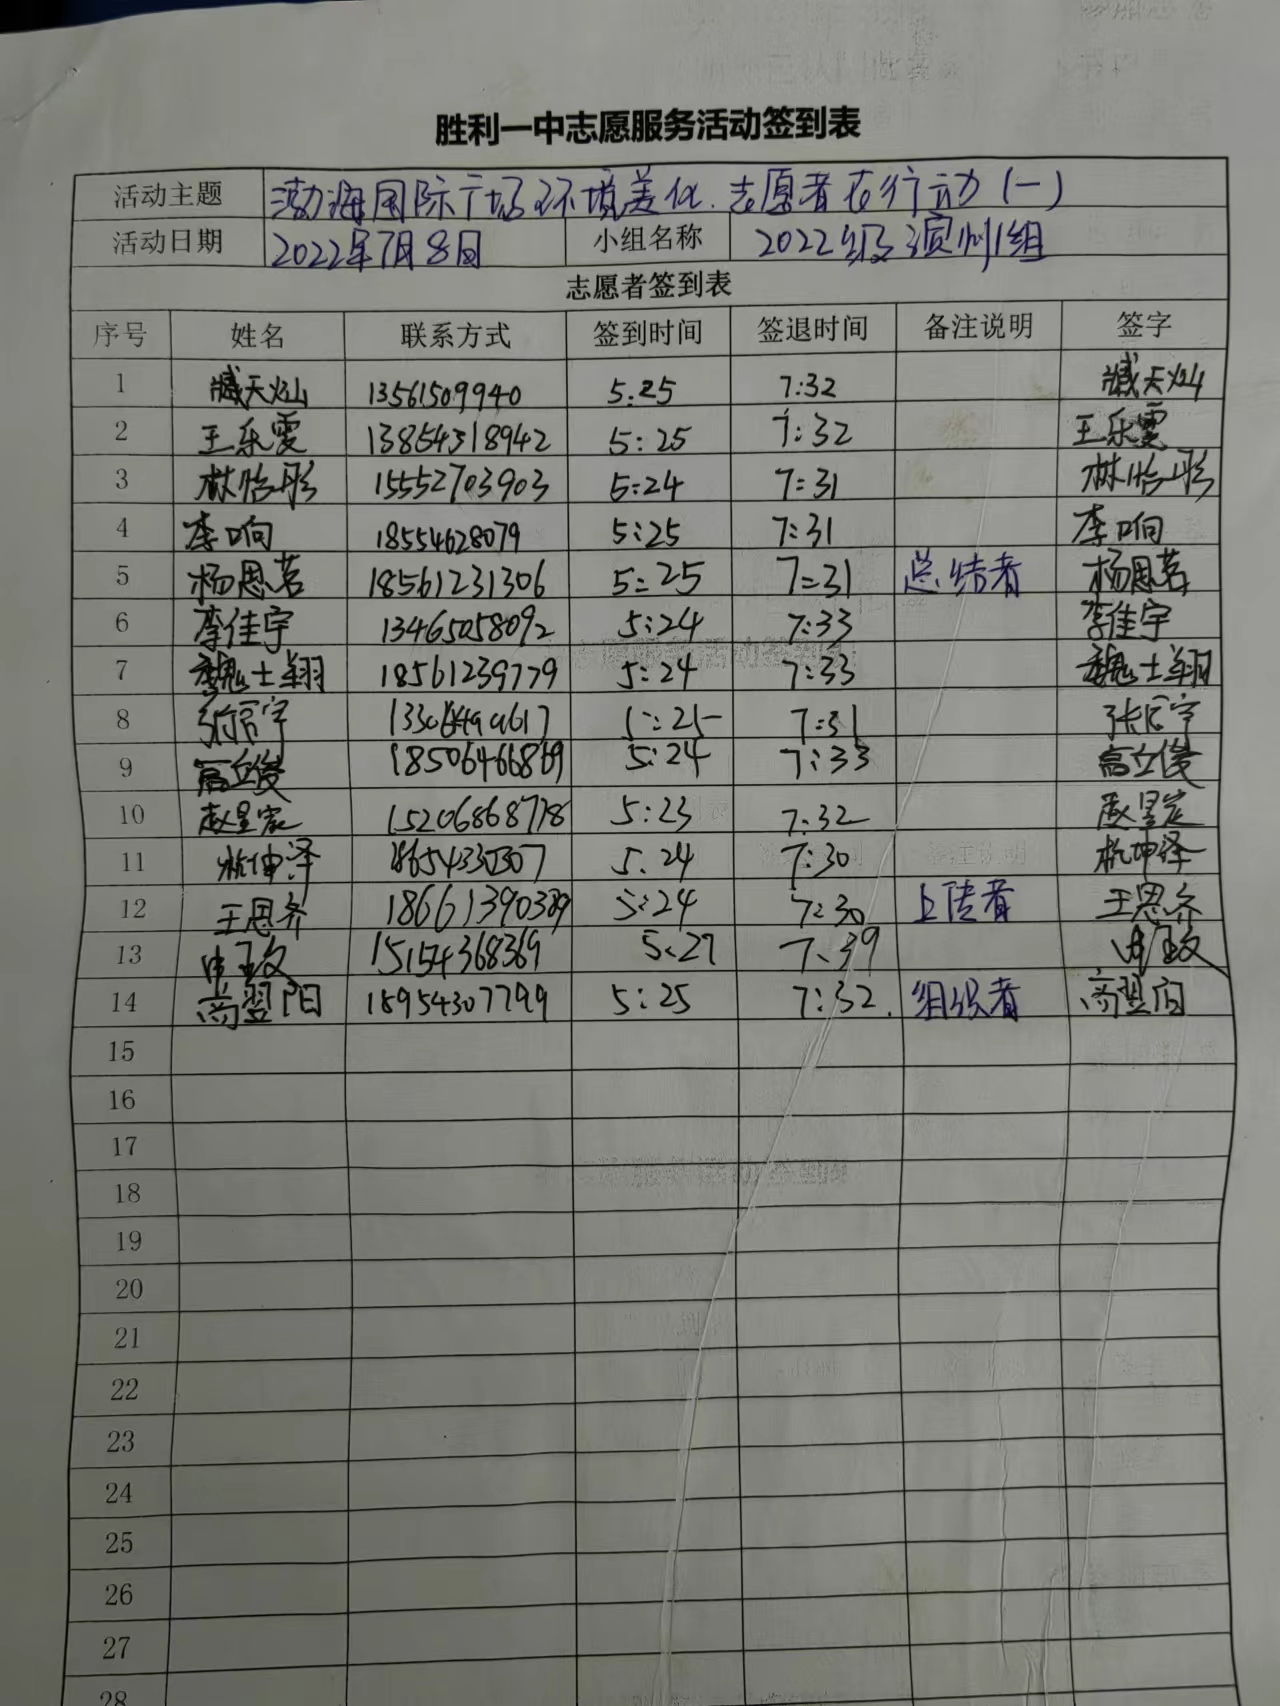 胜利一中志愿服务活动签到表
活动主题 渤海国际广场环境美化.志愿者在行动(一)
活动日期 2022年7月8日 小组名称 2022级滨州1组
志愿者签到表
序号 姓名 联系方式 签到时间 签退时间 备注说明 签字
1 臧天灿 13561509940 5:25 7:32 臧天灿
2 王乐雯 13854318942 5:25 7:32 王乐雯
3 林怡彤 15552703903 5:24 7:31 林怡彤
4 李响 18554628079 5:25 7:31 李响
5 杨恩茗 18561231306 5:25 7:31 总结者 杨恩茗
6 李佳宇 13465058092 5:24 7:33 李佳宇
7 魏士翔 18561239779 5:24 7:33 魏士翔
8 5:25 7:31
9 高立俊 18506466869 5:24 7:33 高立俊
10 赵昱宸 15206868778 5:23 7:32 赵昱宸
11 杭坤泽 18654330307 5:24 7:30 杭坤泽
12 王思齐 18661390389 5:24 7:30 上传者 王思齐
13 15154368369 5:27 7:39
14 商翌阳 18954307799 5:25 7:32. 组织者 商翌阳
15
16
17
18
19
20
21
22
23
24
25
26
27
28